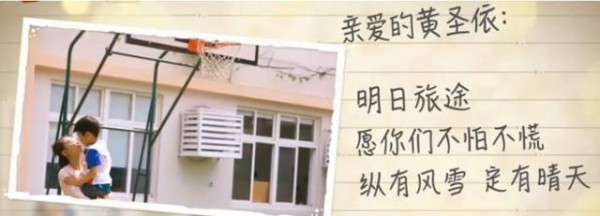 亲爱的黄圣依:
明日旅途
愿你们不怕不慌
纵有风雪 定有晴天